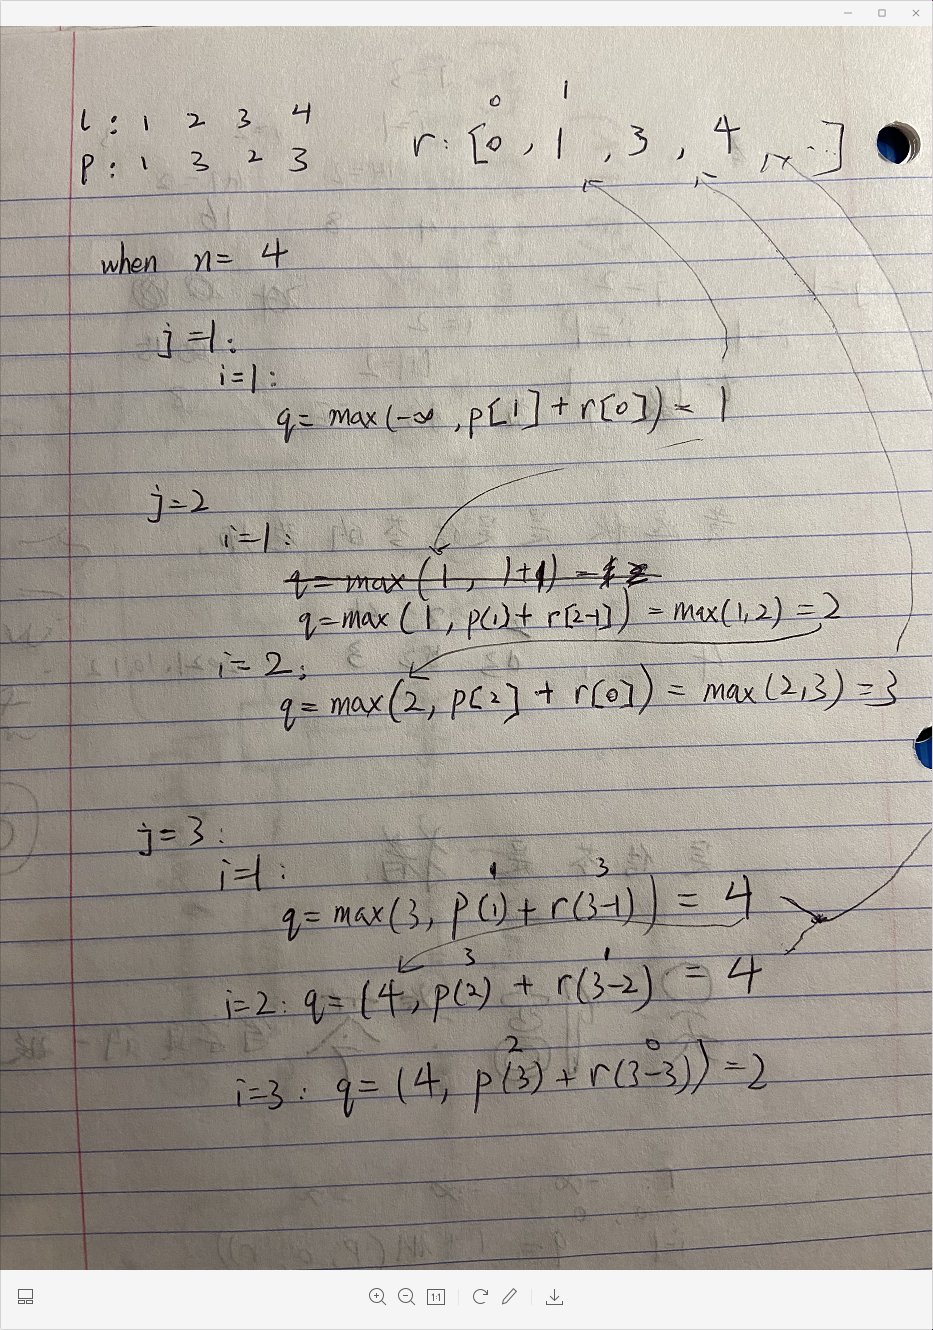 0 1
l : 1 2 3 4 r: [0 , 1 , 3 , 4 , ...]
p : 1 3 2 3
when n= 4
j=1:
i=1:
q= max(-∞ ,p[1]+ r[0]) = 1
j=2
i=1:
q= max (1, 1+1) =
q=max (1, p(1)+ r[2-1]) = max(1,2) =2
i= 2;
q= max(2, p[2] + r[0]) = max(2,3) =3
j= 3 :
i=1 :
1 3
q= max(3, p(1)+ r(3-1)) = 4
3 1
i=2: q= (4, p(2) + r(3-2) = 4
2 0
i=3 : q= (4, p(3) + r(3-3)) =2
1:1